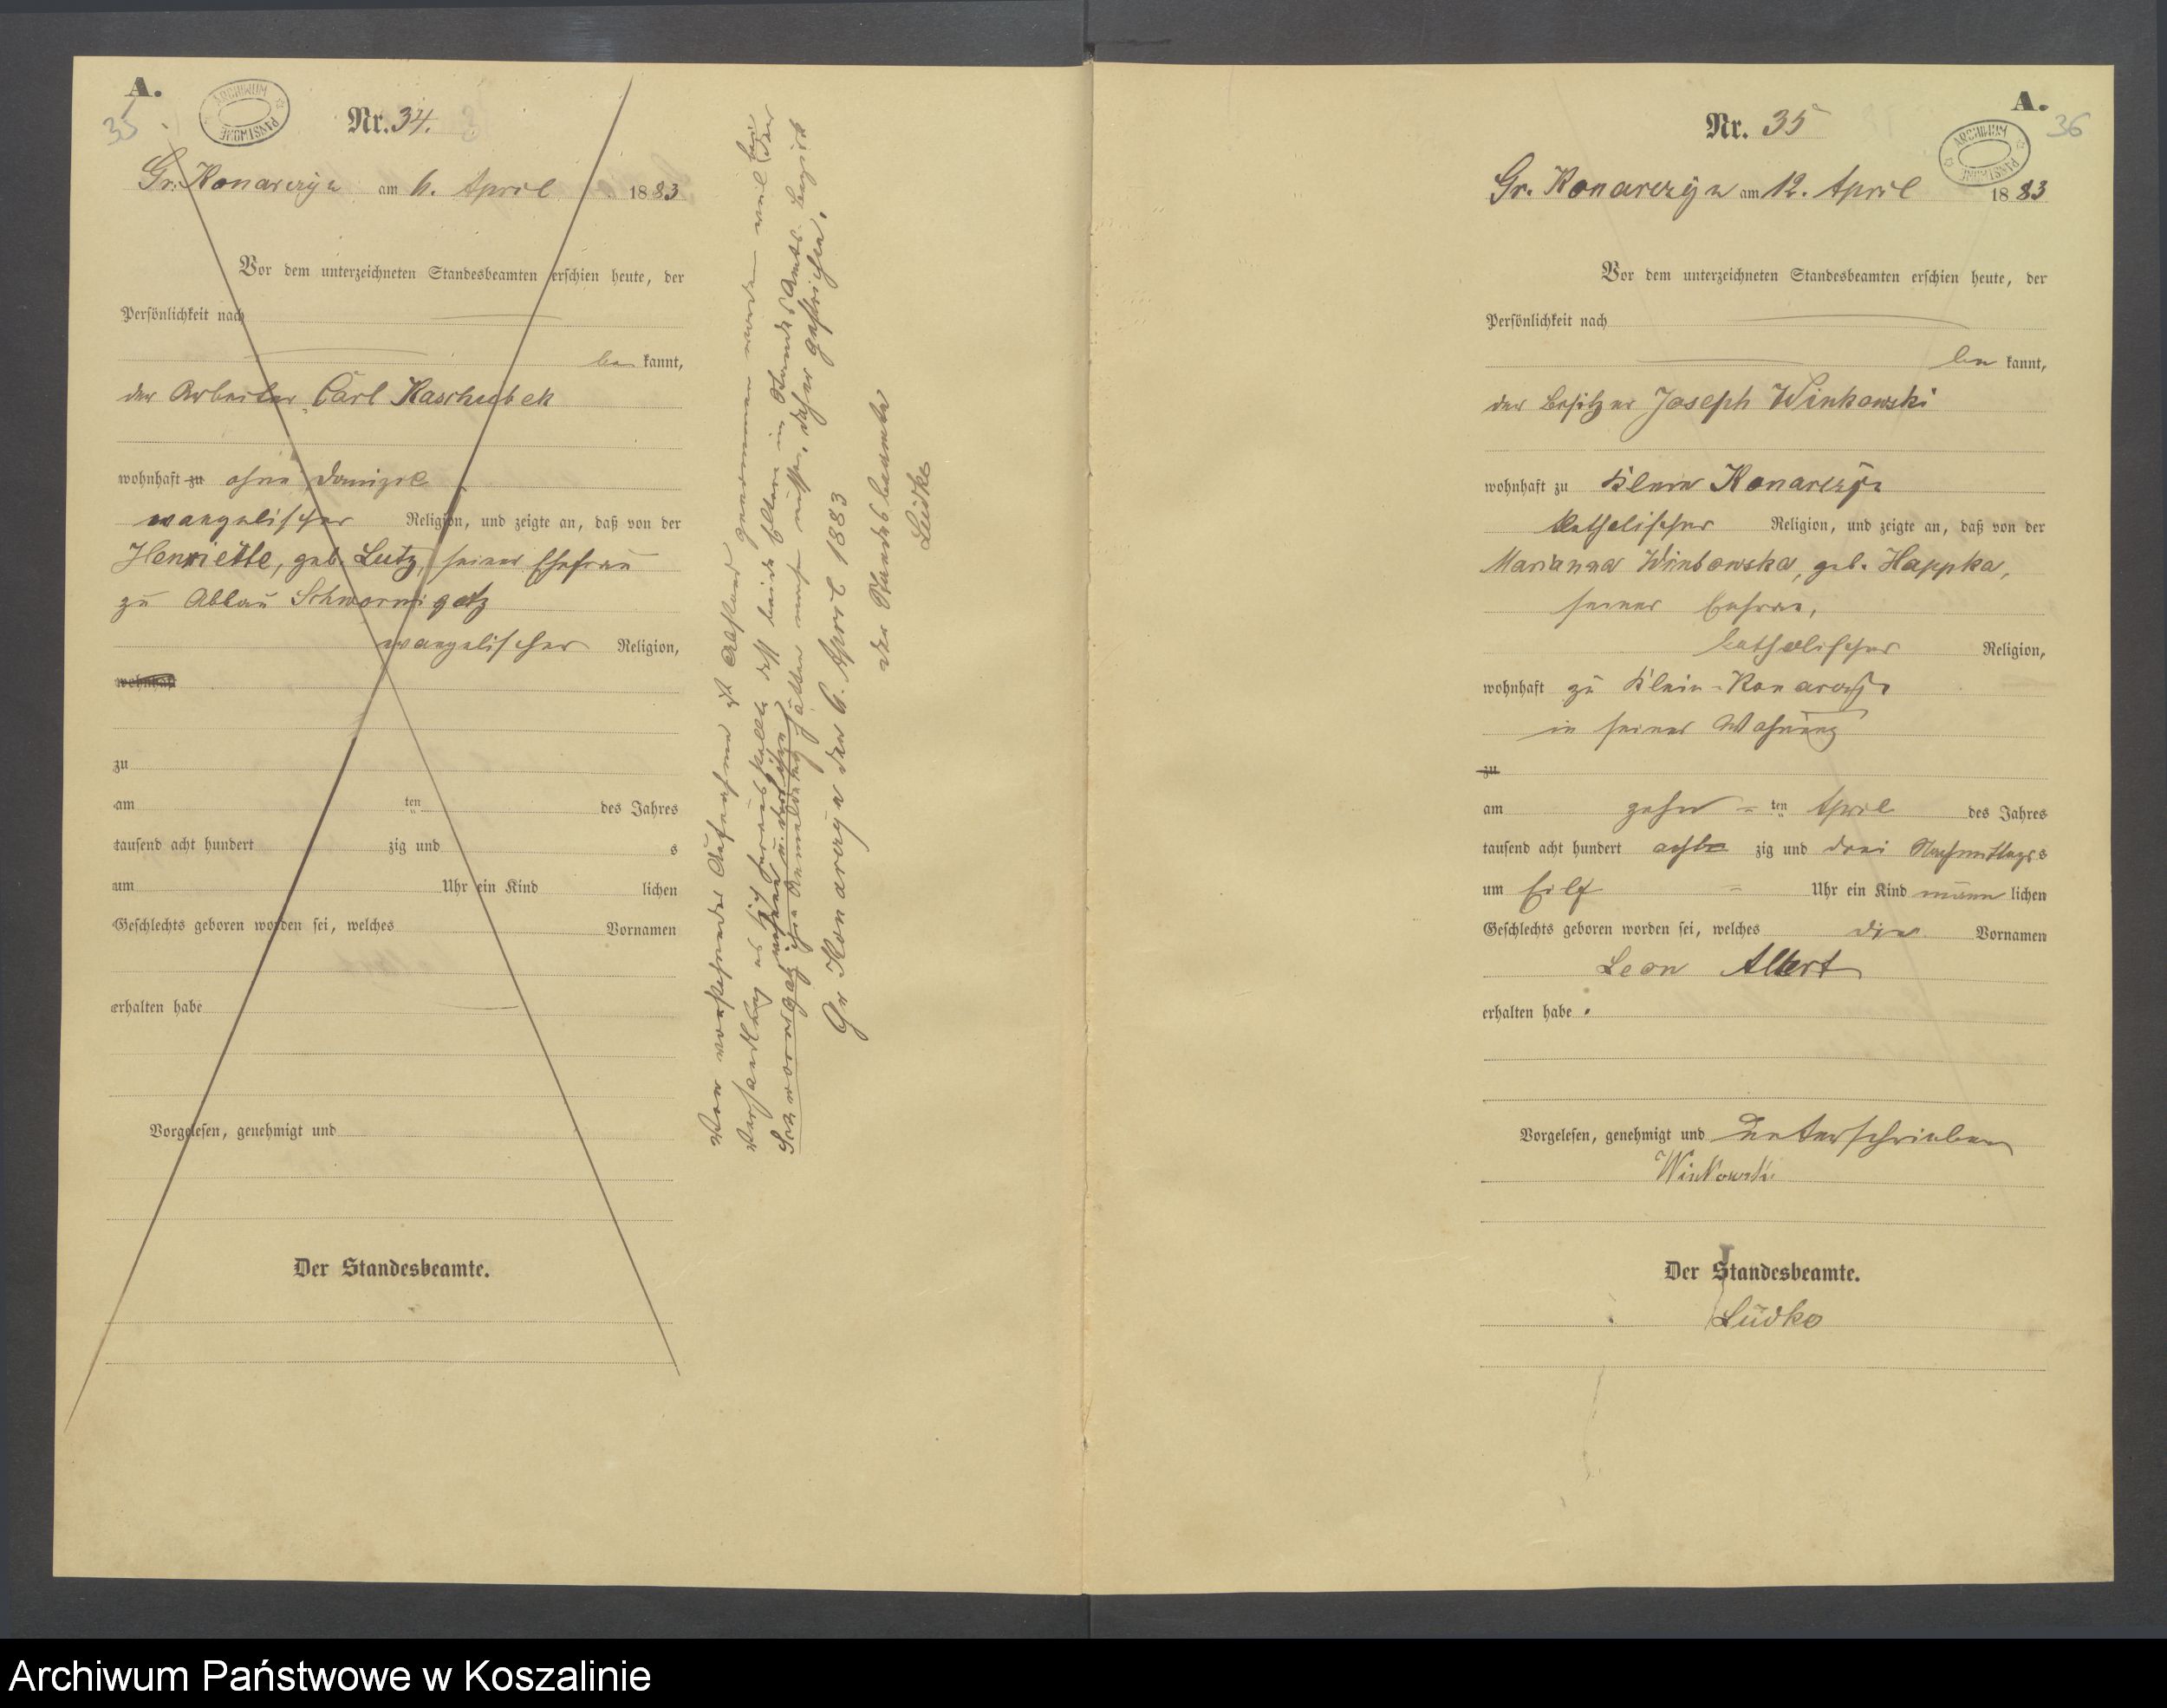 A.
35
ARCHIWUM PAŃSTWOWE
Nr. 34.
Gr. Konarczyn am 6. April 1883
Vor dem unterzeichneten Standesbeamten erschien heute, der
Persönlichkeit nach
be kannt,
der Arbeiter Carl Kaschubek
wohnhaft zu ohne Domizil
evangelischer Religion, und zeigte an, daß von der
Henriette, geb. Lutz, seiner Ehefrau
zu Abbau Schwornigatz
evangelischer Religion,
wohnhaft
zu
am ten des Jahres
tausend acht hundert zig und s
um Uhr ein Kind lichen
Geschlechts geboren worden sei, welches Vornamen
erhalten habe
Vorgelesen, genehmigt und
Der Standesbeamte.
Von vorstehender Aufnahme ist Abstand genommen worden weil bei der
Verhandlung es sich herausstellte daß beide Eltern im Standes Amts-Bezirk
Schwornigatz wohnen u. dort ihre Anmeldung hätten machen müssen, daher gestrichen.
Gr Konarczyn den 6. April 1883
Der Standesbeamte
Lüdke
A.
36
ARCHIWUM PAŃSTWOWE
Nr. 35
Gr. Konarczyn am 12. April 1883
Vor dem unterzeichneten Standesbeamten erschien heute, der
Persönlichkeit nach
be kannt,
der Besitzer Joseph Winkowski
wohnhaft zu Klein Konarczyn
katholischer Religion, und zeigte an, daß von der
Marianna Winkowska, geb. Happka,
seiner Ehefrau,
katholischer Religion,
wohnhaft zu Klein-Konarczyn
in seiner Wohnung
zu
am zehn ten April des Jahres
tausend acht hundert acht zig und drei Nachmittags
um Eilf Uhr ein Kind männ lichen
Geschlechts geboren worden sei, welches die Vornamen
Leon Albert
erhalten habe.
Vorgelesen, genehmigt und unterschrieben
Winkowski
Der Standesbeamte.
Lüdke
Archiwum Państwowe w Koszalinie